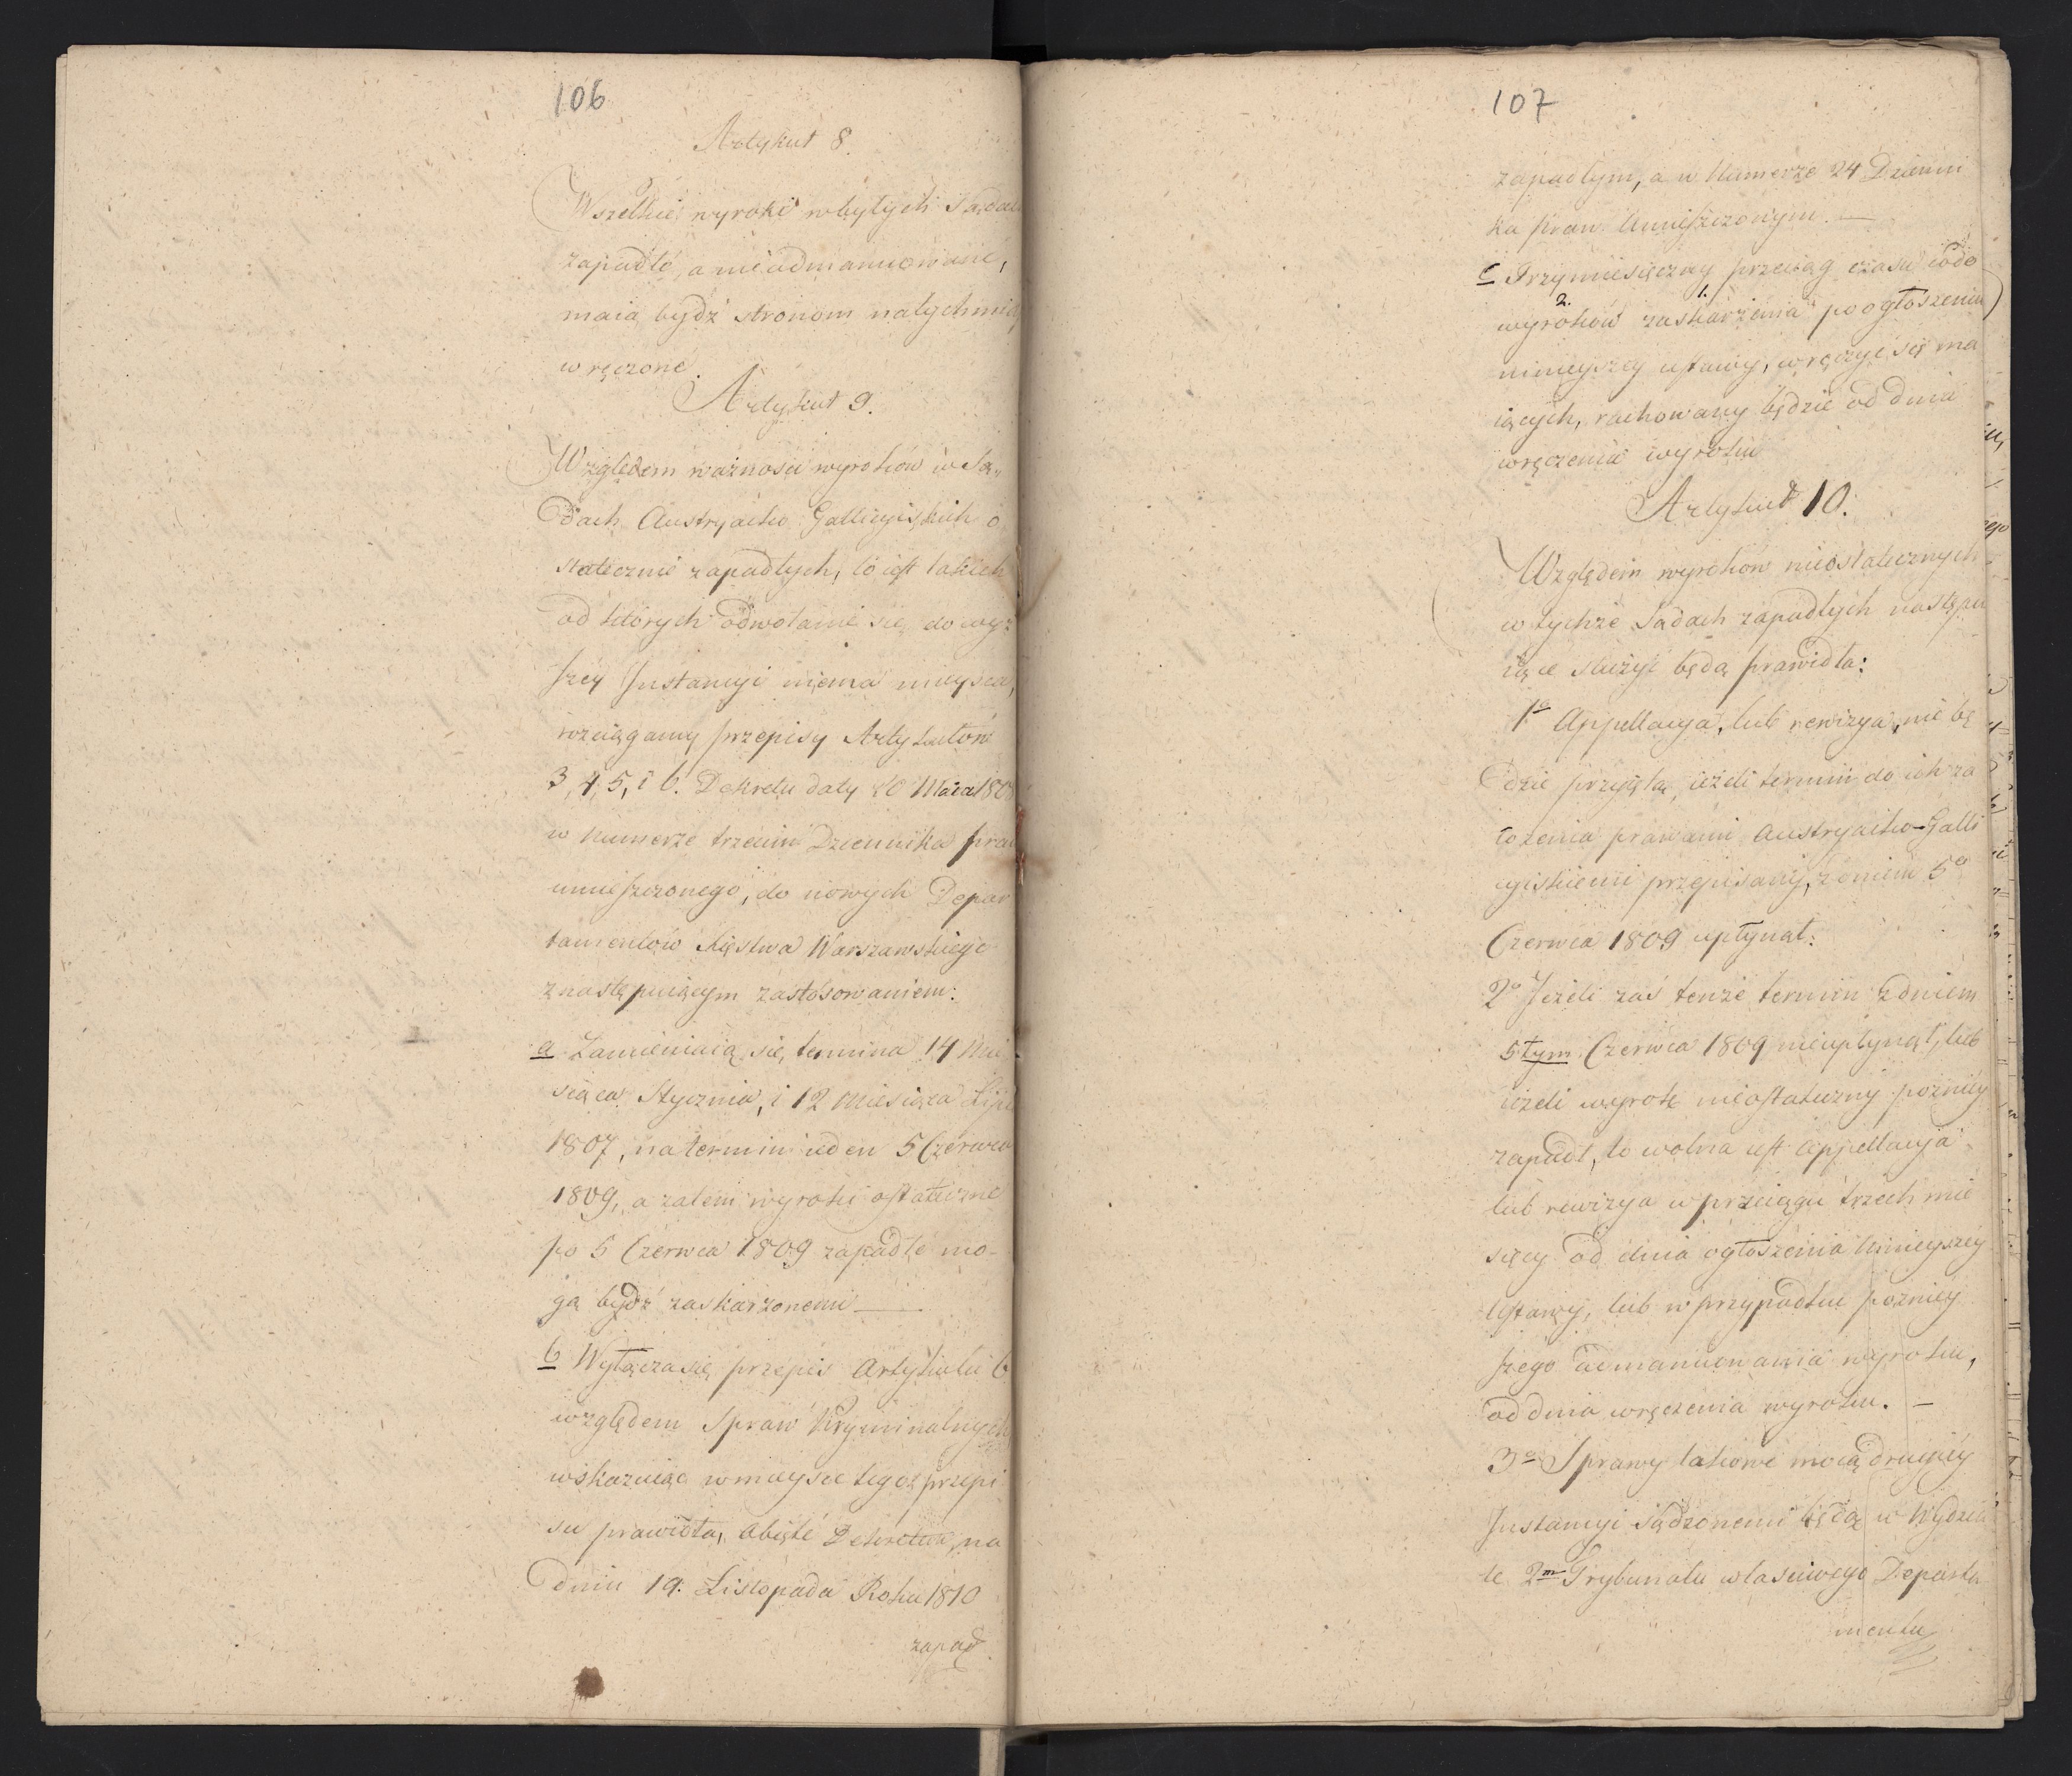 106
Artykuł 8.
Wszelkie wyroki w byłych Sądach
zapadłe, a nieadmanuowane,
maią bydź stronom natychmia
wręczone.
Artykuł 9.
Względem ważności wyroków w Są„
dach Austryacko Gallicyiskich o
statecznie zapadłych, to iest takich
od których odwołanie się do wyż
szey Instancyi niema mieysca,
rozciągamy przepisy Artykułów
3, 4, 5, i 6. Dekretu daty 20 Maia 180
w Numerze trzecim Dziennika praw
umieszczonego, do nowych Depar
tamentów Xięstwa Warszawskiego
z następuiącym zastosowaniem:
a Zamieniaią się, termina 14 Mie
siąca Stycznia, i 12 Miesiąca Lipc
1807, na termin ieden 5 Czerwca
1809, a zatem wyroki ostateczne
po 5 Czerwca 1809 zapadłe mo-
gą bydź zaskarzonemi —
b Wyłącza się przepis Artykułu 6
względem Spraw Kryminalnych
wskazuiąc w mieysce tegoż przepi
su prawidła, obięte Dekretem, na
dniu 19. Listopada Roku 1810
zapad
107
zapadłym, a w Numerze 24 Dzienni
ka praw Umieszczonym. —
c Trzymiesięczny przeciąg czasu co do
2. 1.
wyroków zaskarżenia po ogłoszeniu
ninieyszey ustawy, wręczyć się ma
iących, rachowany będzie od dnia
wręczenia wyroku
Artykuł 10.
Względem wyroków nieostatecznych
w tychże Sądach zapadłych następu
iące służyć będą prawidła:
1o Appellacya, lub rewizya, nie bę
dzie przyięta, ieżeli termin do ich za
łożenia prawami Austryacko-Galli
cyiskiemi przepisany, z dniem 5o
Czerwca 1809 upłynął:
2o Jeżeli zaś tenże termin z dniem
5tym Czerwca 1809 nieupłynął, lub
ieżeli wyrok nieostateczny pozniey
zapadł, to wolna iest Appellacya
lub rewizya w przeciągu trzech mie
sięcy od dnia ogłoszenia Ninieyszey
Ustawy, lub w przypadku pozniey
szego admanuowania wyroku,
od dnia wręczenia wyroku. —
3o Sprawy takowe mocą drugiey
Instancyi sądzonemi będą w Wydzia
le 2m Trybunału właściwego Departa
mentu